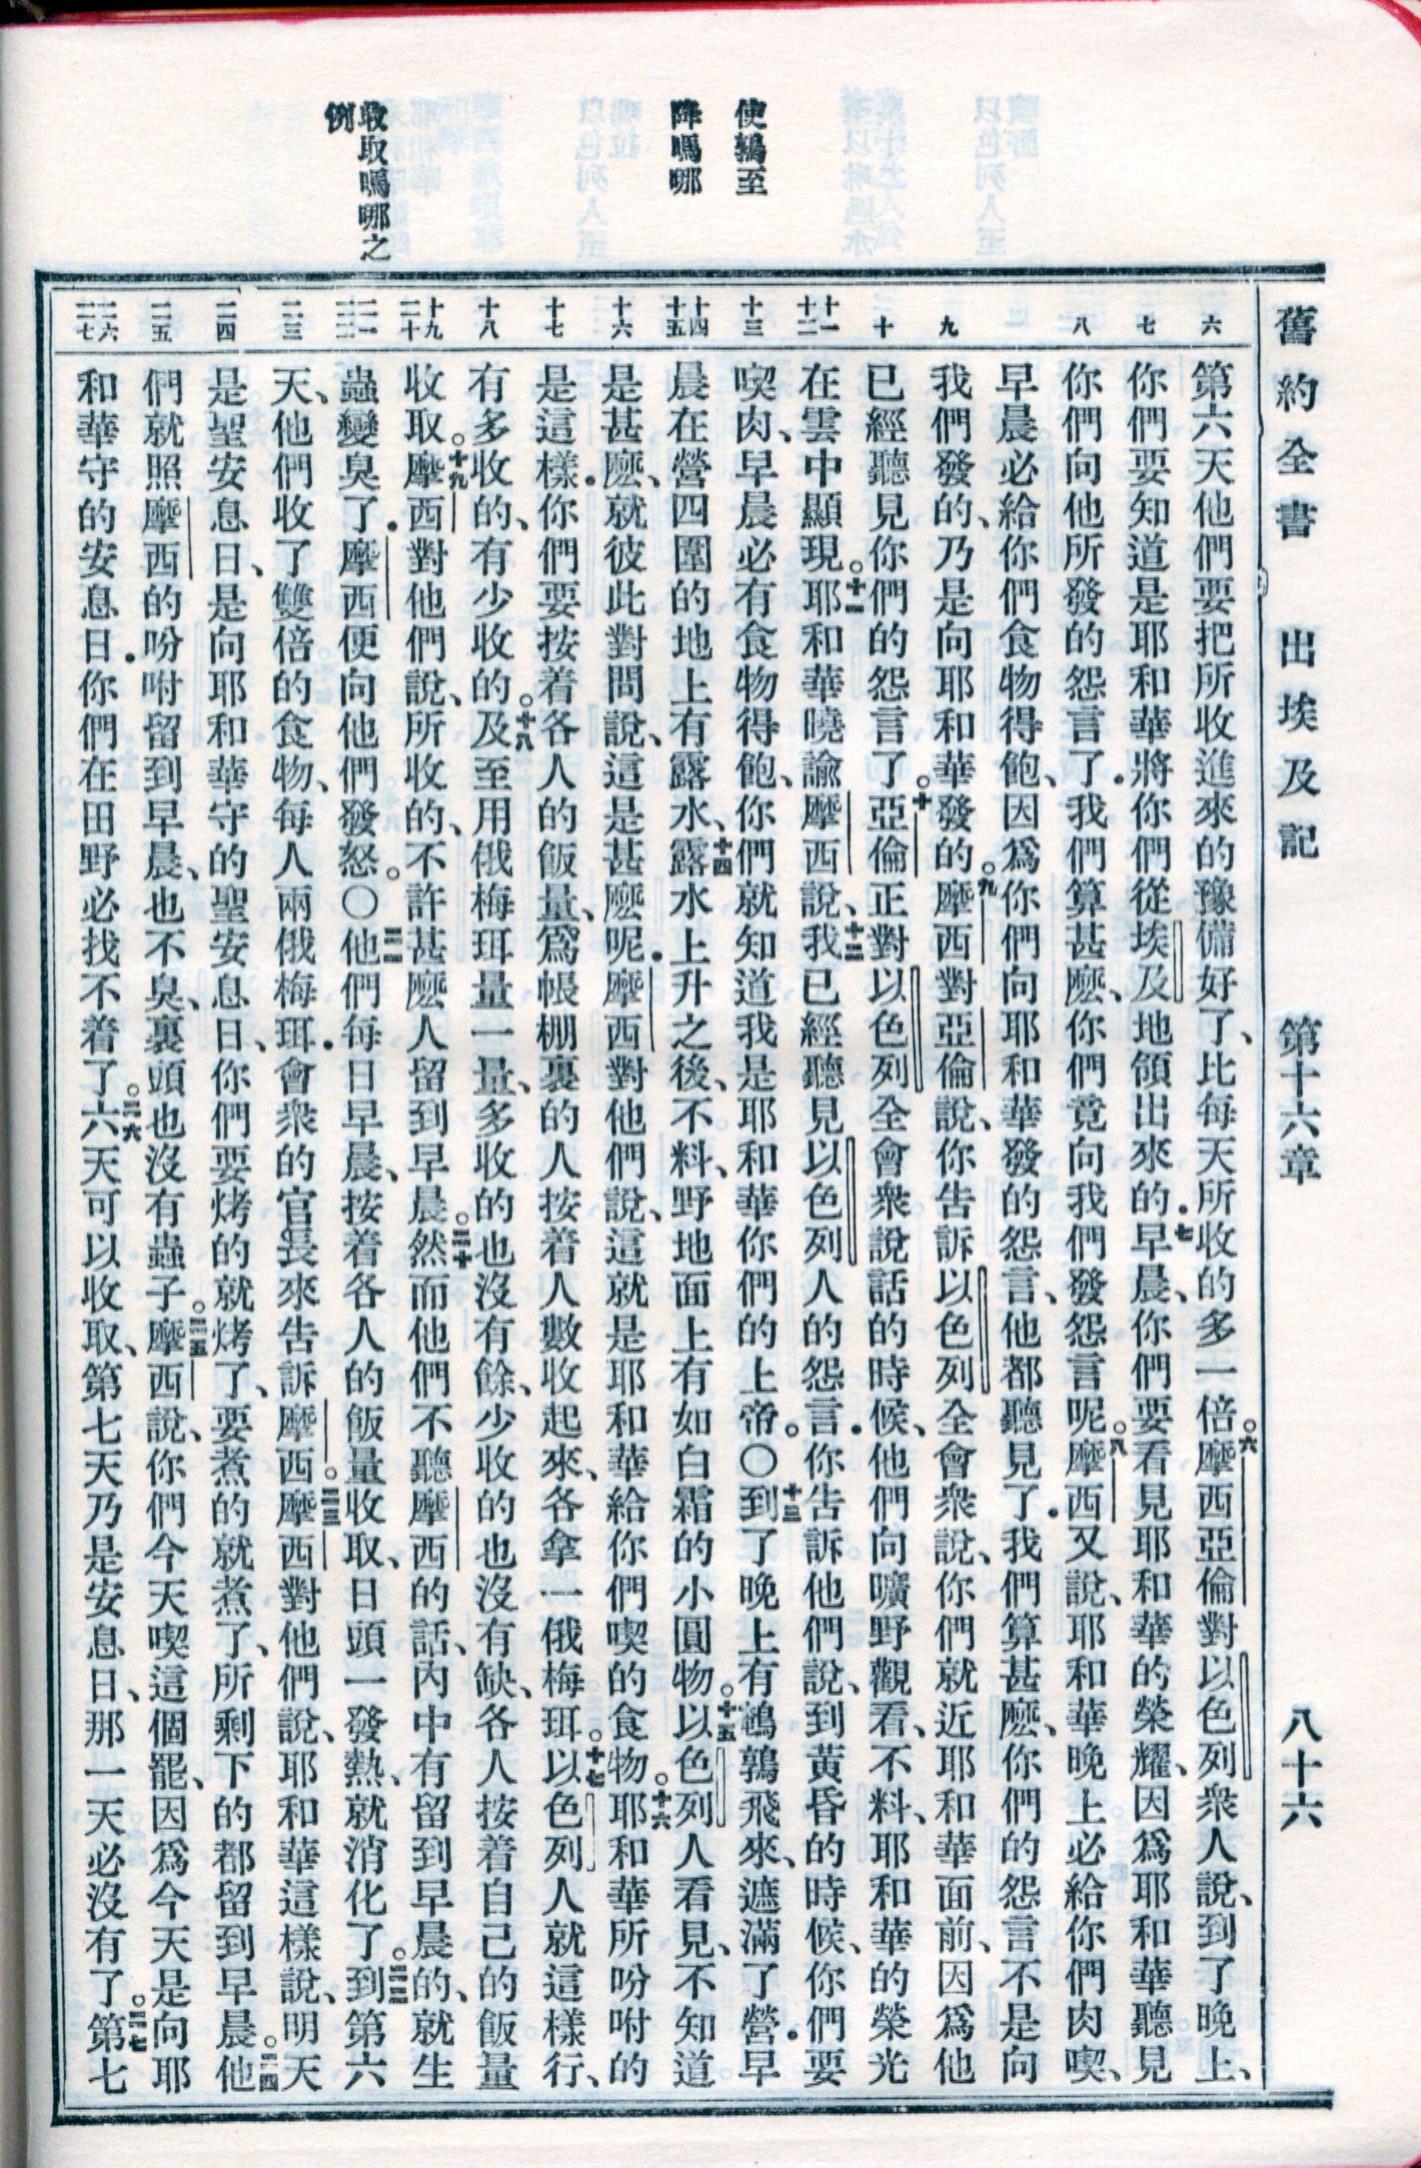 舊約全書　出埃及記　第十六章　八十六
使鶉至
降嗎哪
收取嗎哪之
例
六
七
八
九
十
十一
十二
十三
十四
十五
十六
十七
十八
十九
二十
二一
二二
二三
二四
二五
二六
二七
第六天他們要把所收進來的豫備好了、比每天所收的多一倍。六摩西亞倫對以色列衆人說、到了晚上、
你們要知道是耶和華將你們從埃及地領出來的．七早晨、你們要看見耶和華的榮耀、因爲耶和華聽見
你們向他所發的怨言了．我們算甚麼、你們竟向我們發怨言呢。八摩西又說、耶和華晚上必給你們肉喫、
早晨必給你們食物得飽、因爲你們向耶和華發的怨言、他都聽見了．我們算甚麼、你們的怨言不是向
我們發的、乃是向耶和華發的。九摩西對亞倫說、你告訴以色列全會衆說、你們就近耶和華面前、因爲他
已經聽見你們的怨言了。十亞倫正對以色列全會衆說話的時候、他們向曠野觀看、不料、耶和華的榮光
在雲中顯現。十一耶和華曉諭摩西說、十二我已經聽見以色列人的怨言．你告訴他們說、到黃昏的時候、你們要
喫肉、早晨必有食物得飽、你們就知道我是耶和華你們的上帝。〇十三到了晚上有鵪鶉飛來、遮滿了營．早
晨在營四圍的地上有露水、十四露水上升之後、不料、野地面上有如白霜的小圓物。十五以色列人看見、不知道
是甚麼、就彼此對問說、這是甚麼呢．摩西對他們說、這就是耶和華給你們喫的食物。十六耶和華所吩咐的
是這樣．你們要按着各人的飯量、爲帳棚裏的人按着人數收起來、各拿一俄梅珥。十七以色列人就這樣行、
有多收的、有少收的。十八及至用俄梅珥量一量、多收的也沒有餘、少收的也沒有缺、各人按着自己的飯量
收取。十九摩西對他們說、所收的、不許甚麼人留到早晨。二十然而他們不聽摩西的話、內中有留到早晨的、就生
蟲變臭了．摩西便向他們發怒。〇二一他們每日早晨、按着各人的飯量收取、日頭一發熱、就消化了。二二到第六
天、他們收了雙倍的食物、每人兩俄梅珥．會衆的官長來告訴摩西。二三摩西對他們說、耶和華這樣說、明天
是聖安息日、是向耶和華守的聖安息日、你們要烤的就烤了、要煮的就煮了、所剩下的都留到早晨。二四他
們就照摩西的吩咐留到早晨、也不臭、裏頭也沒有蟲子。二五摩西說、你們今天喫這個罷、因爲今天是向耶
和華守的安息日．你們在田野必找不着了。二六六天可以收取、第七天乃是安息日、那一天必沒有了。二七第七